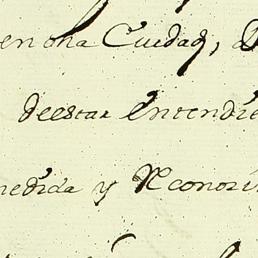 en ona Cuidad,
deestar entendi
medida y Reconosi